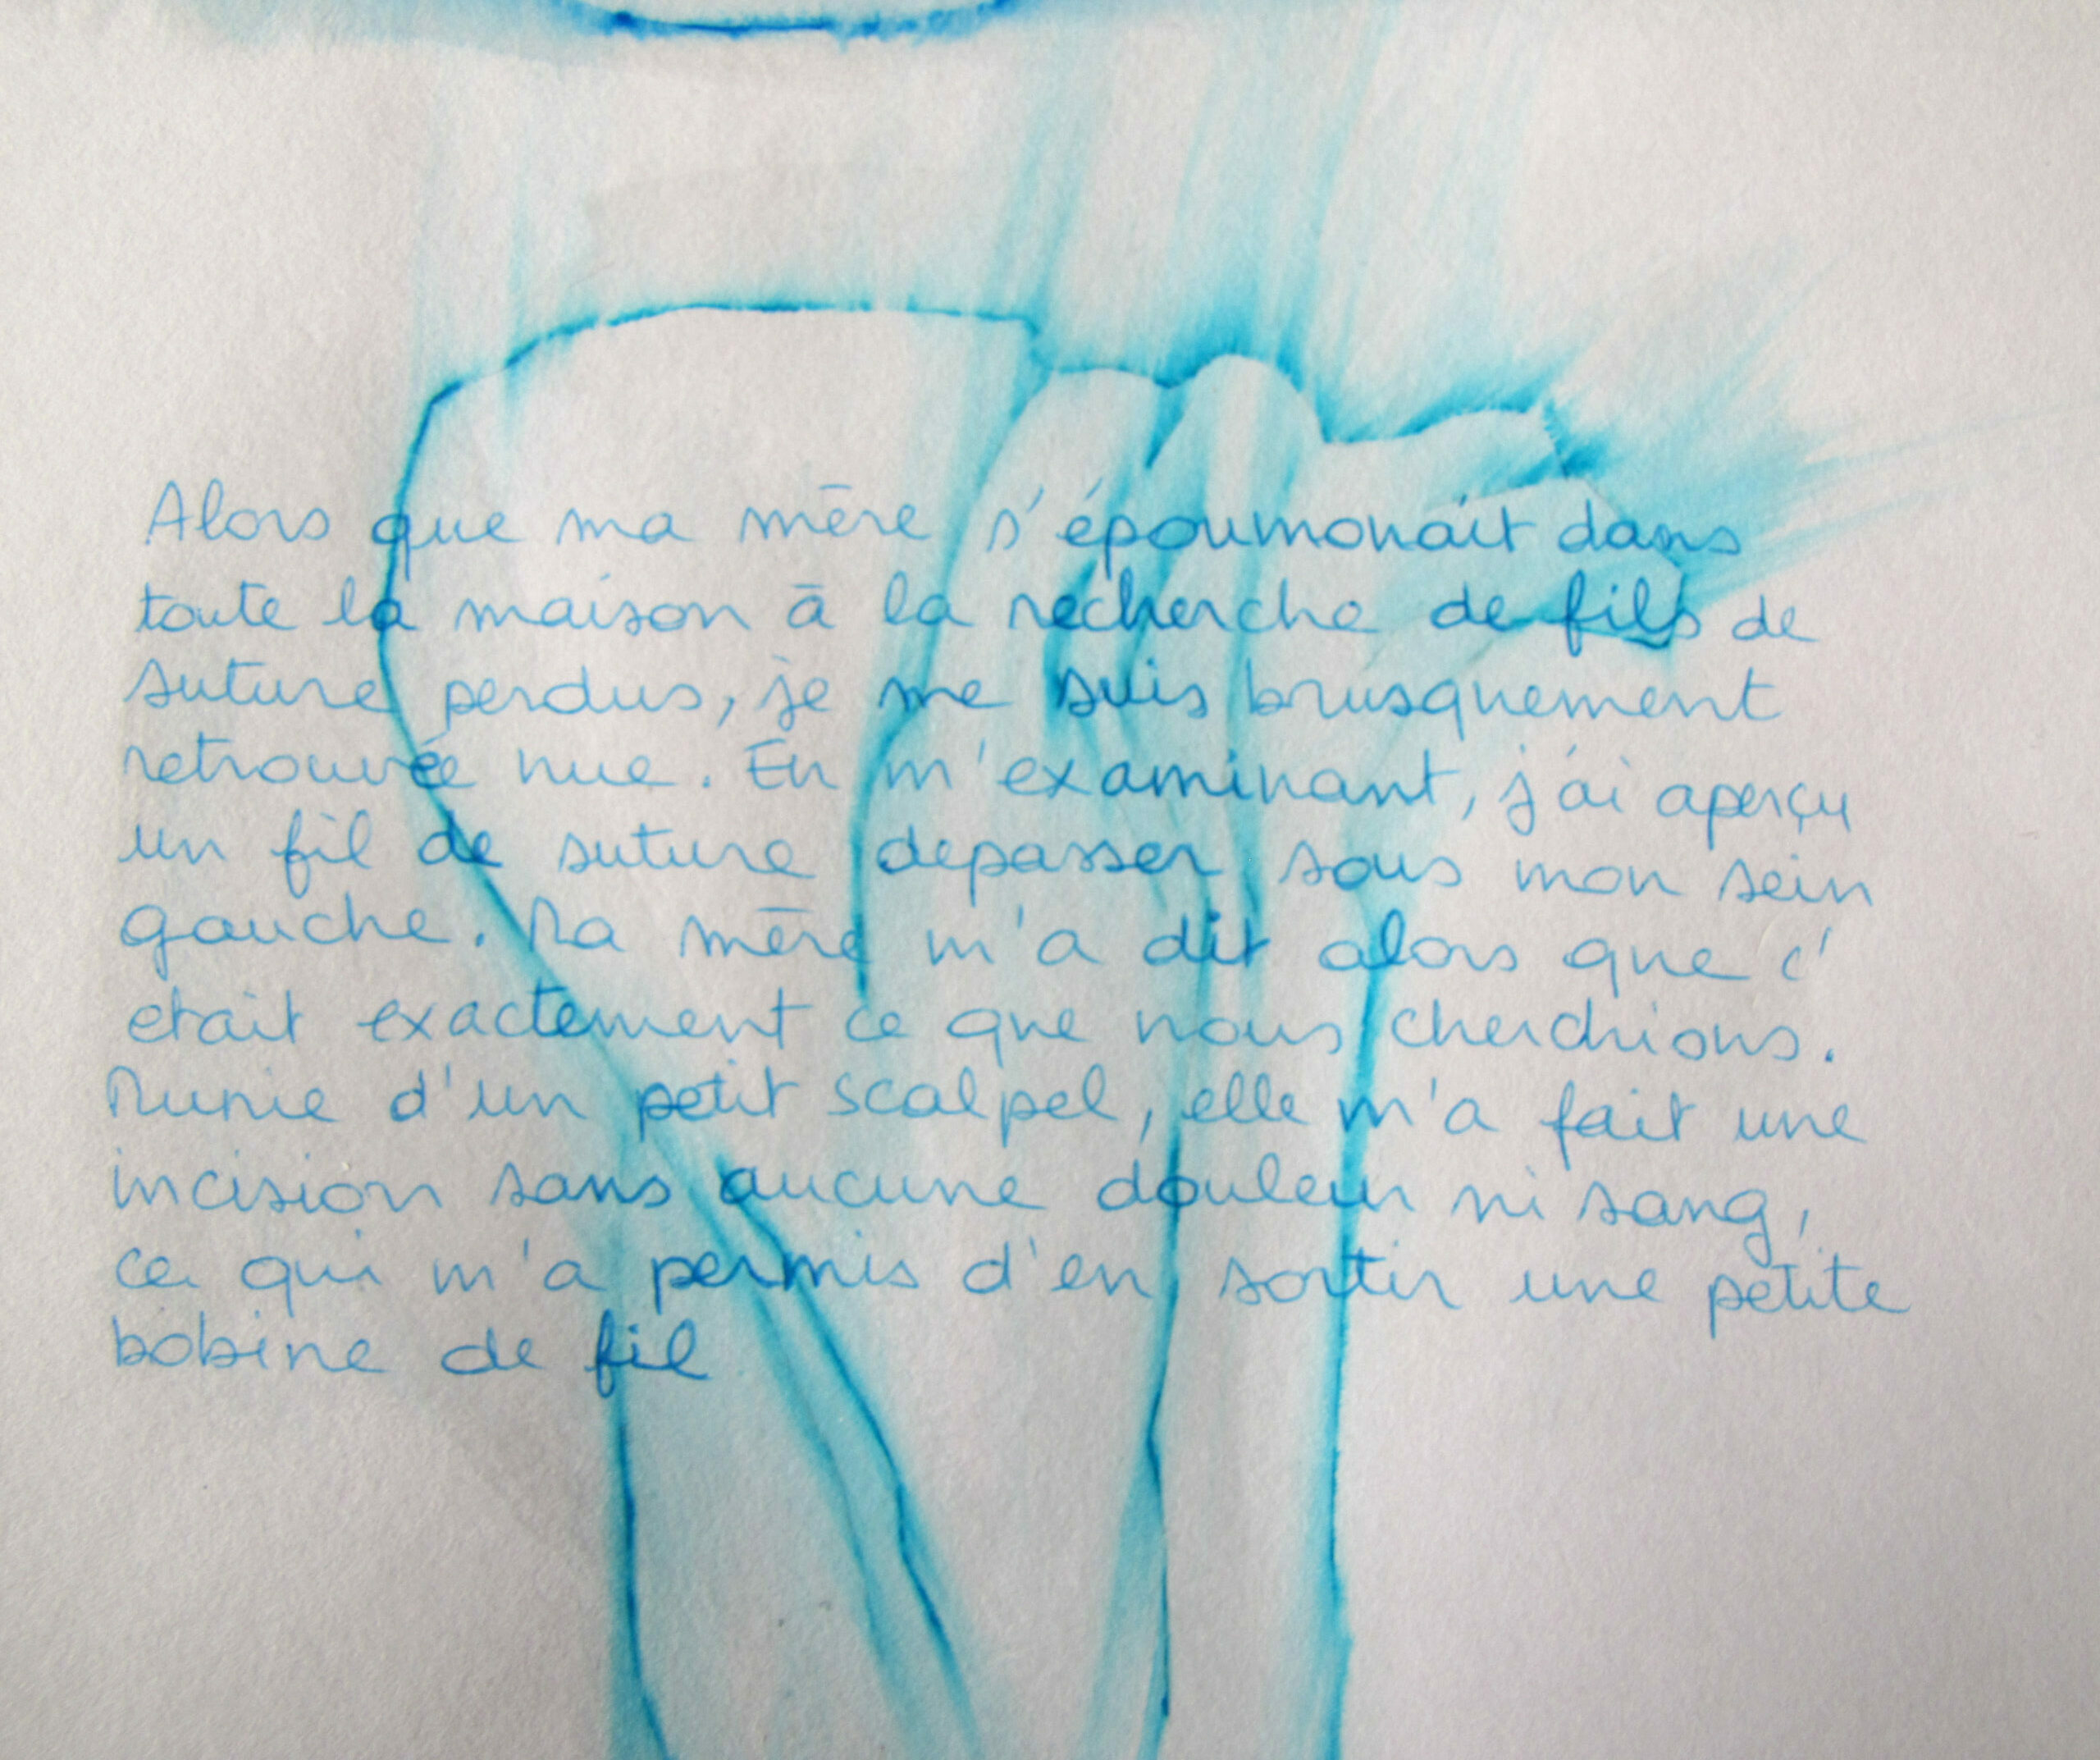 Alors que ma mère s'époumonait dans
toute la maison à la recherche de fils de
suture perdus, je me suis brusquement
retrouvée nue. En m'examinant, j'ai aperçu
un fil de suture depasser sous mon sein
gauche. Ma mère m'a dit alors que c'
etait exactement ce que nous cherchions.
Munie d'un petit scalpel, elle m'a fait une
incision sans aucune douleur ni sang,
ce qui m'a permis d'en sortir une petite
bobine de fil